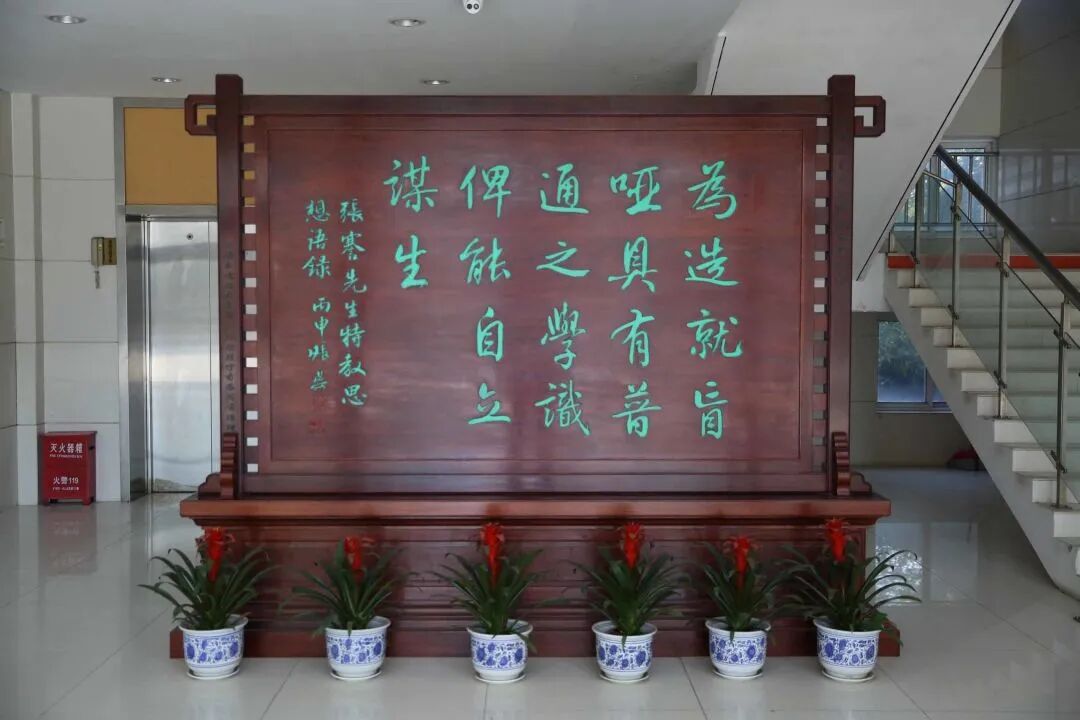 為造就盲
哑具有普
通之學識
俾能自立
謀生
張謇先生特教思
想语録 丙申
灭火器箱
火警119